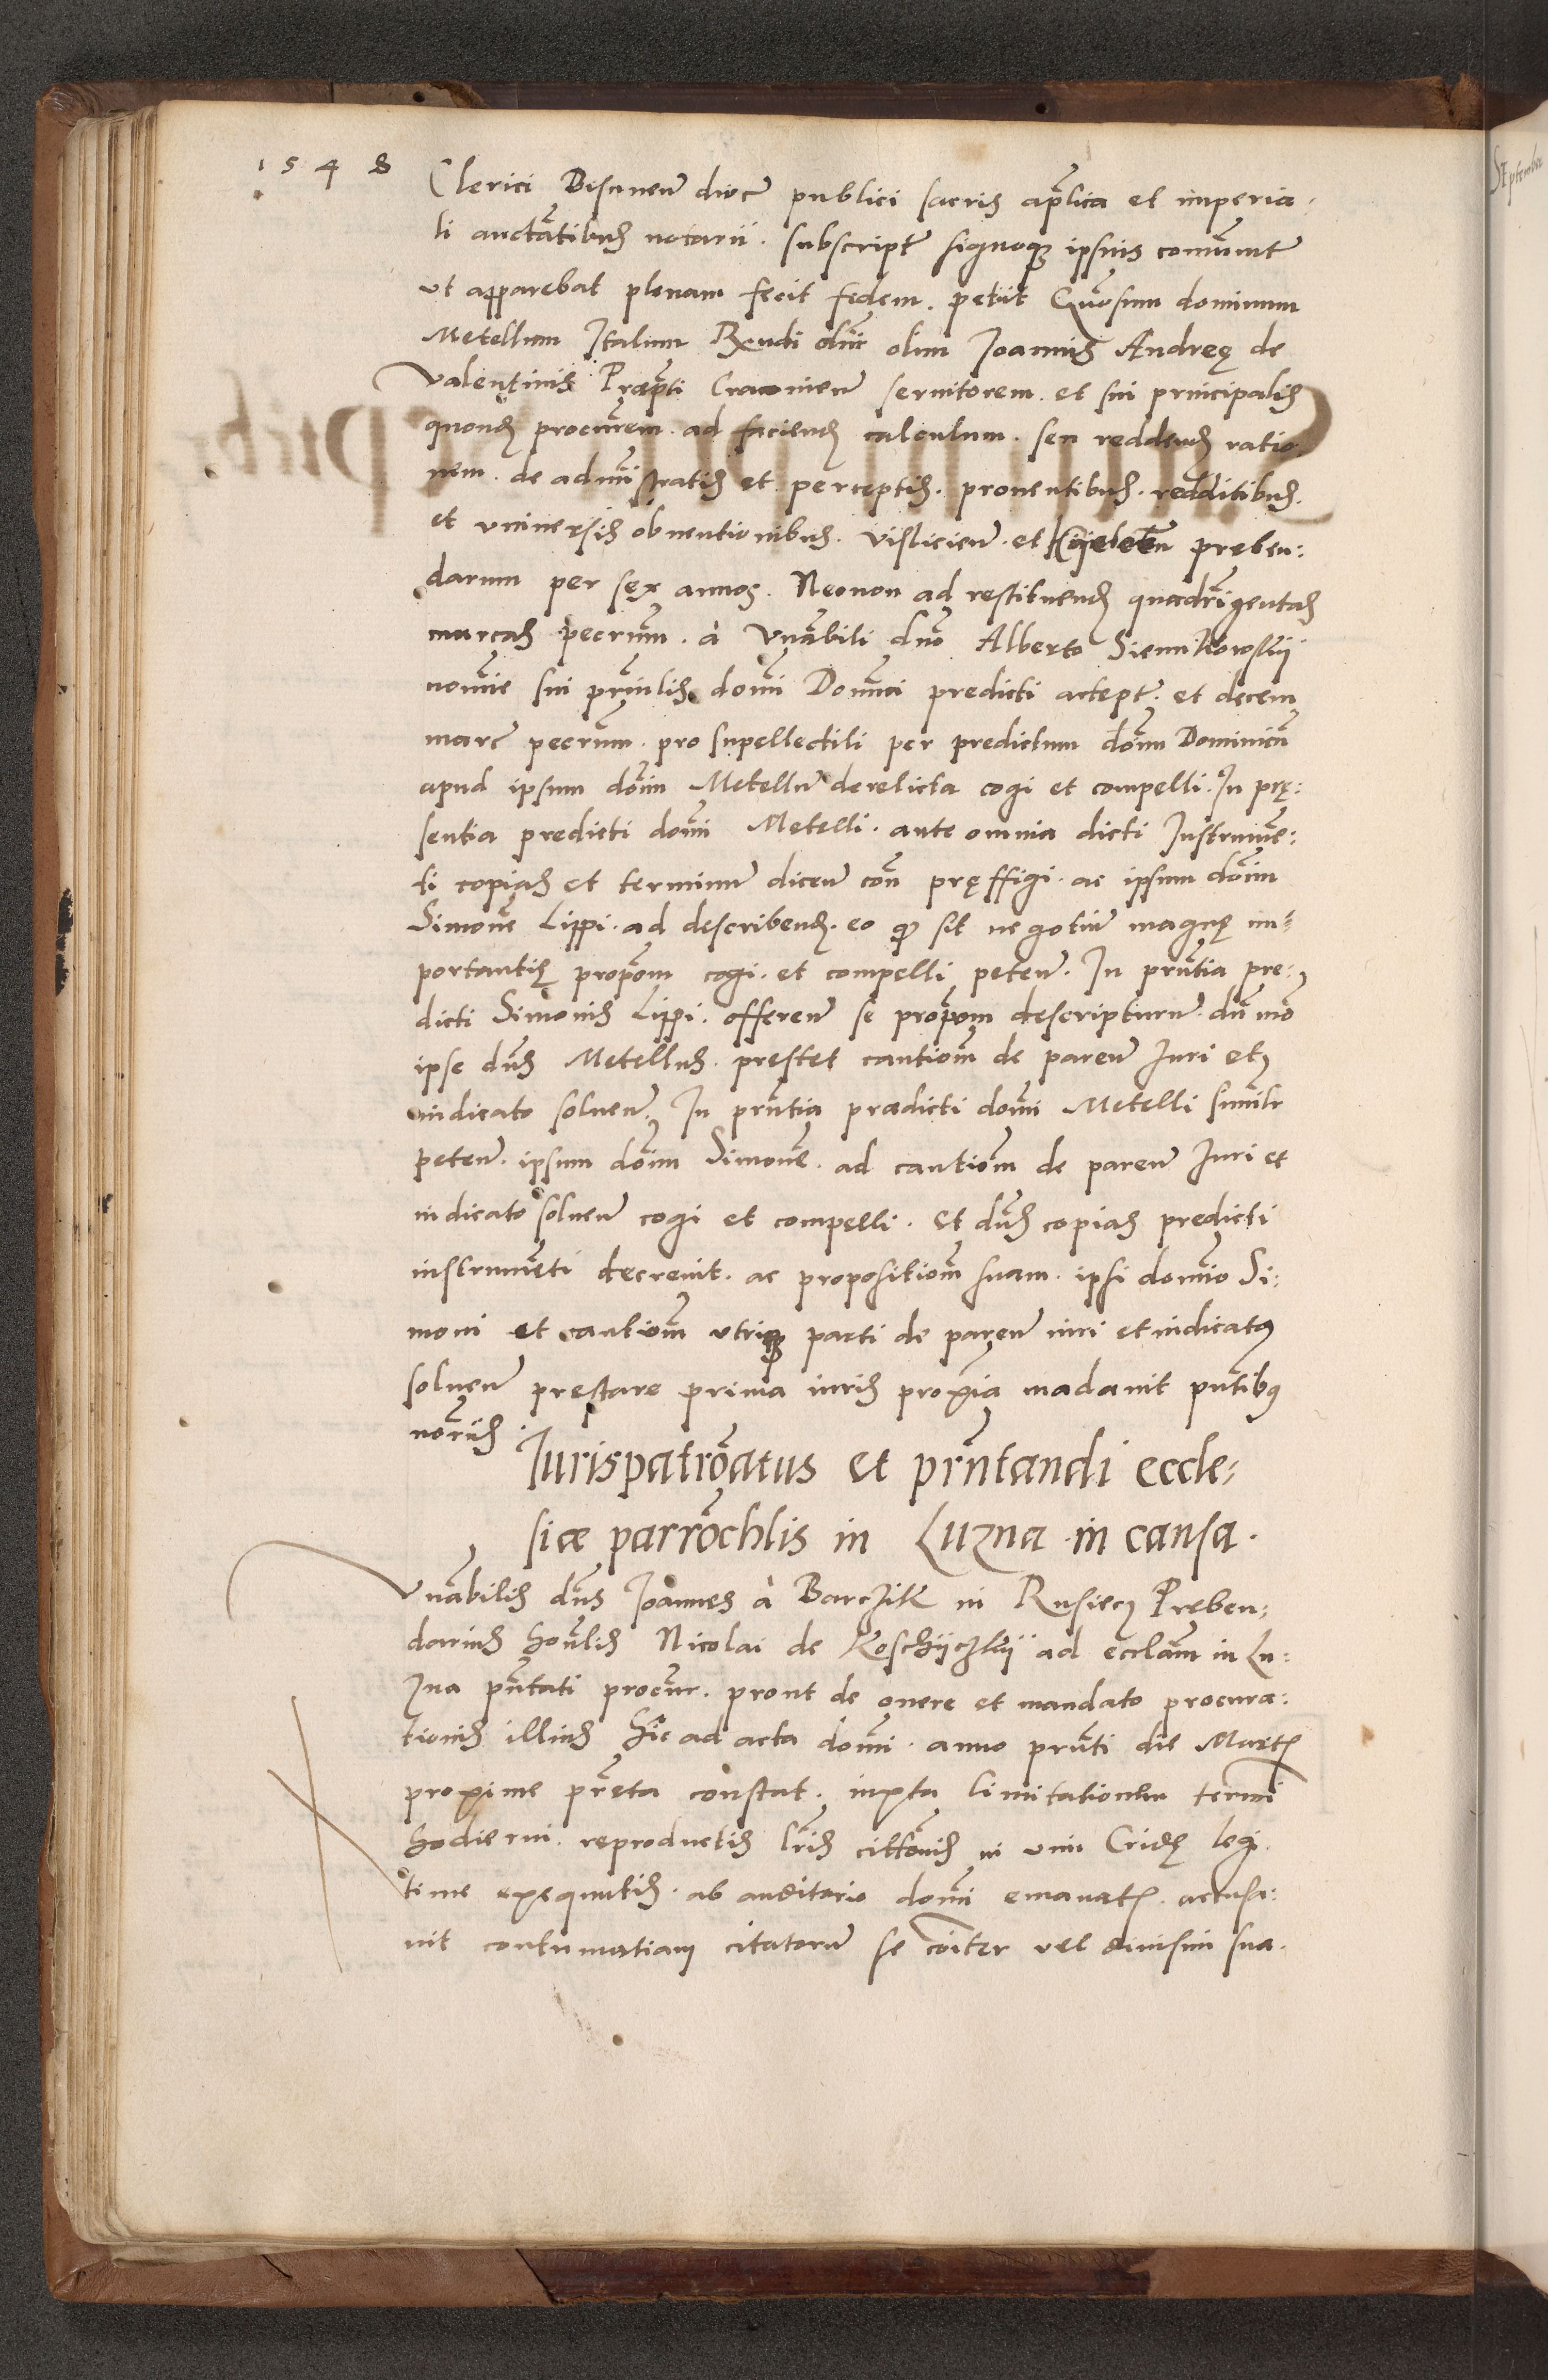 1548
Clerici Bisunen̄ dioc̄ publici sacris ap̄lica et imperia-
li auctātibus notarii. subscript̄ signoq; ipsius comūnit̄
ut apparebat plenam fecit fedem. petiit Gn̄osum dominum
Metellum Italum R̄xndi dn̄i olim Joannis Andreę de
Valentinis Præpt̄i Cracovien̄ servitorem. et sui principalis
quond̄ procūrem. ad faciend̄ calculum. seu reddend̄ ratio
nem. de admīstratis et perceptis. proventibus. redditibus.
et universis obventionibus. Vislicien̄. et preben:
darum per sex annos. Necnon ad restituend̄ quadrīgentas
marcas pecrūm. a Vn̄abili dn̄o Alberto
nomīe sui prīnlis. domī Domīci predicti accept̄. et decem
marc̄ pecrūm. pro supellectili per predictum domn̄ Dominicū
apud ipsum dom̄ Metellū derelicta cogi et compelli. In prę:
sentia predicti domī Metelli. ante omnia dicti Instrumē:
ti copias et terminū dicen̄ con̄ pręffigi. ac ipsum dom̄
Simonē Lippi. ad describend̄. eo q̄ sit negotiū magnę im-
portantię propōm cogi. et compelli peten̄. In prn̄tia pre-
dicti Simonis Lippi. offeren̄ se propōm descripturū. dū mō
ipse dn̄s Metellus. prestet cautiom̄ de paren̄ Iuri et
iudicato solven̄. In prn̄tia prædicti domī Metelli simil̄r
peten̄. ipsum dom̄ Simonē. ad cautiom̄ de paren̄ Iuri et
iudicato solven̄ cogi et compelli. Et dn̄s copias predicti
instrumēti decrevit. ac propositiom̄ suam. ipsi domīo Si:
moni et cautiom̄ utriq; parti de paren̄ iuri et iudicato
solven̄ prestare prima iuris proxīa mādavit pn̄tibus
nor̄iis.
Iurispatrōatus et prn̄tandi eccle-
siæ parrōchlis in Luzna in causa.
Vn̄abilis dn̄s Joannes à Barczik in Rusiecz Pręben:
darius Honlis Nicolai de ad ecclām in Lu:
zna pn̄tati procūr. prout de onere et mandato procura:
tionis illius hic ad acta domī. anno prn̄ti die Martis
proxime prēta constat. iuxta limitationem termī
hodierni. reproductis lr̄is cittōnis in vim Cridę legi
time exequutis. ab auditorio domī emanatis. accusa:
vit contumatiam citatorū se cōiter vel divisim sua.
Septembris